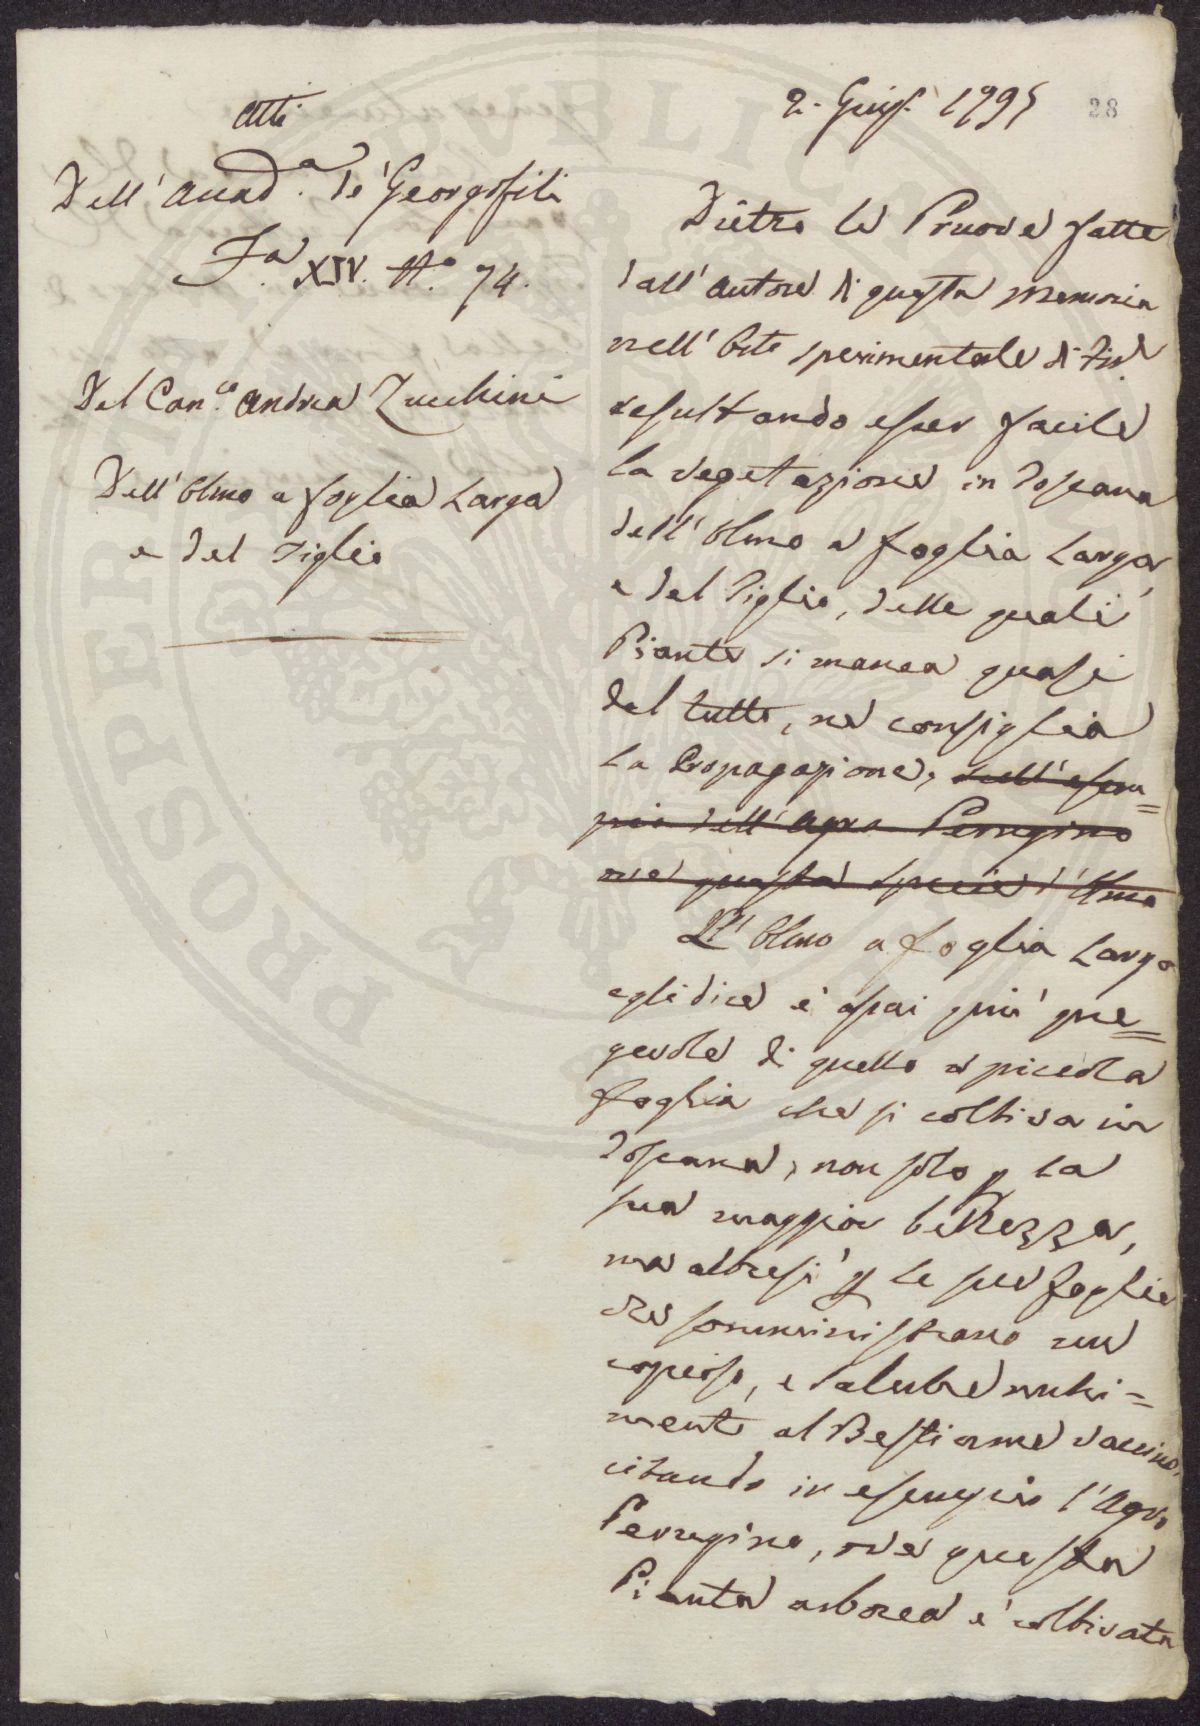 Atti
Dell' Accad.a de' Georgofili
F.a XIV. N.o 74.
Del Can.co Andrea Zucchini
Dell' Olmo a foglia Larga
e del Tiglio
2. Giug.o 1795
28
Dietro le Pruove fatte
dall' Autore di questa Memoria
nell' Orto sperimentale di Fir.e
resultando esser facile
la vegetazione in Toscana
dell' Olmo a foglia Larga,
e del Tiglio, delle quali
Piante si manca quasi
del tutto, ne consiglia
La Propagazione, sull' esem=
pio dell' Agro Perugino
ove questa specie d' Olmo
L' Olmo a foglia Larga
egli dice è assai più pre=
gevole di quello a piccola
foglia che si coltiva in
Toscana, non solo p La
sua maggior bellezza,
ma altresì p le sue foglie
che somministrano un
copioso, e salubre nutri=
mento al Bestiame vaccino,
citando in esempio l' Agro
Perugino, ove questa
Pianta arborea è coltivata
PROSPERITATI PVBLICAE